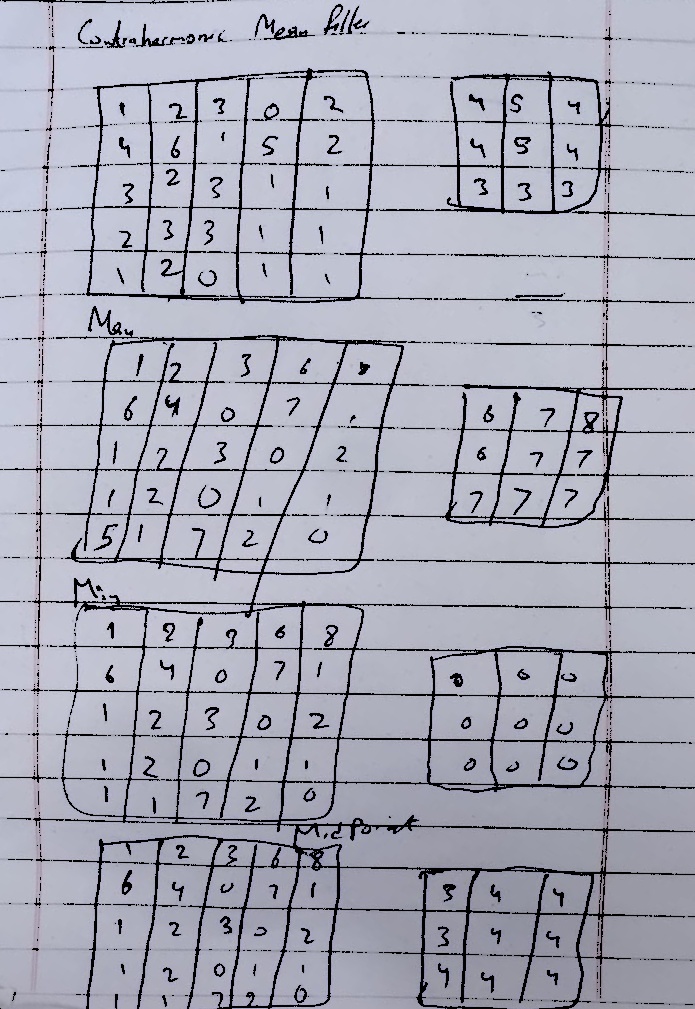 Contraharmonic Mean filter
1 2 3 0 2
4 6 1 5 2
3 2 3 1 1
2 3 3 1 1
1 2 0 1 1
4 5 4
4 5 4
3 3 3
Max
1 2 3 6
6 4 0 7
1 2 3 0 2
1 2 0 1 1
5 1 7 2 0
6 7 8
6 7 7
7 7 7
Min
1 2 3 6 8
6 4 0 7 1
1 2 3 0 2
1 2 0 1 1
1 1 7 2 0
0 0 0
0 0 0
0 0 0
Mid Point
1 2 3 6 8
6 4 0 7 1
1 2 3 0 2
1 2 0 1 1
1 1 7 2 0
3 4 4
3 4 4
4 4 4